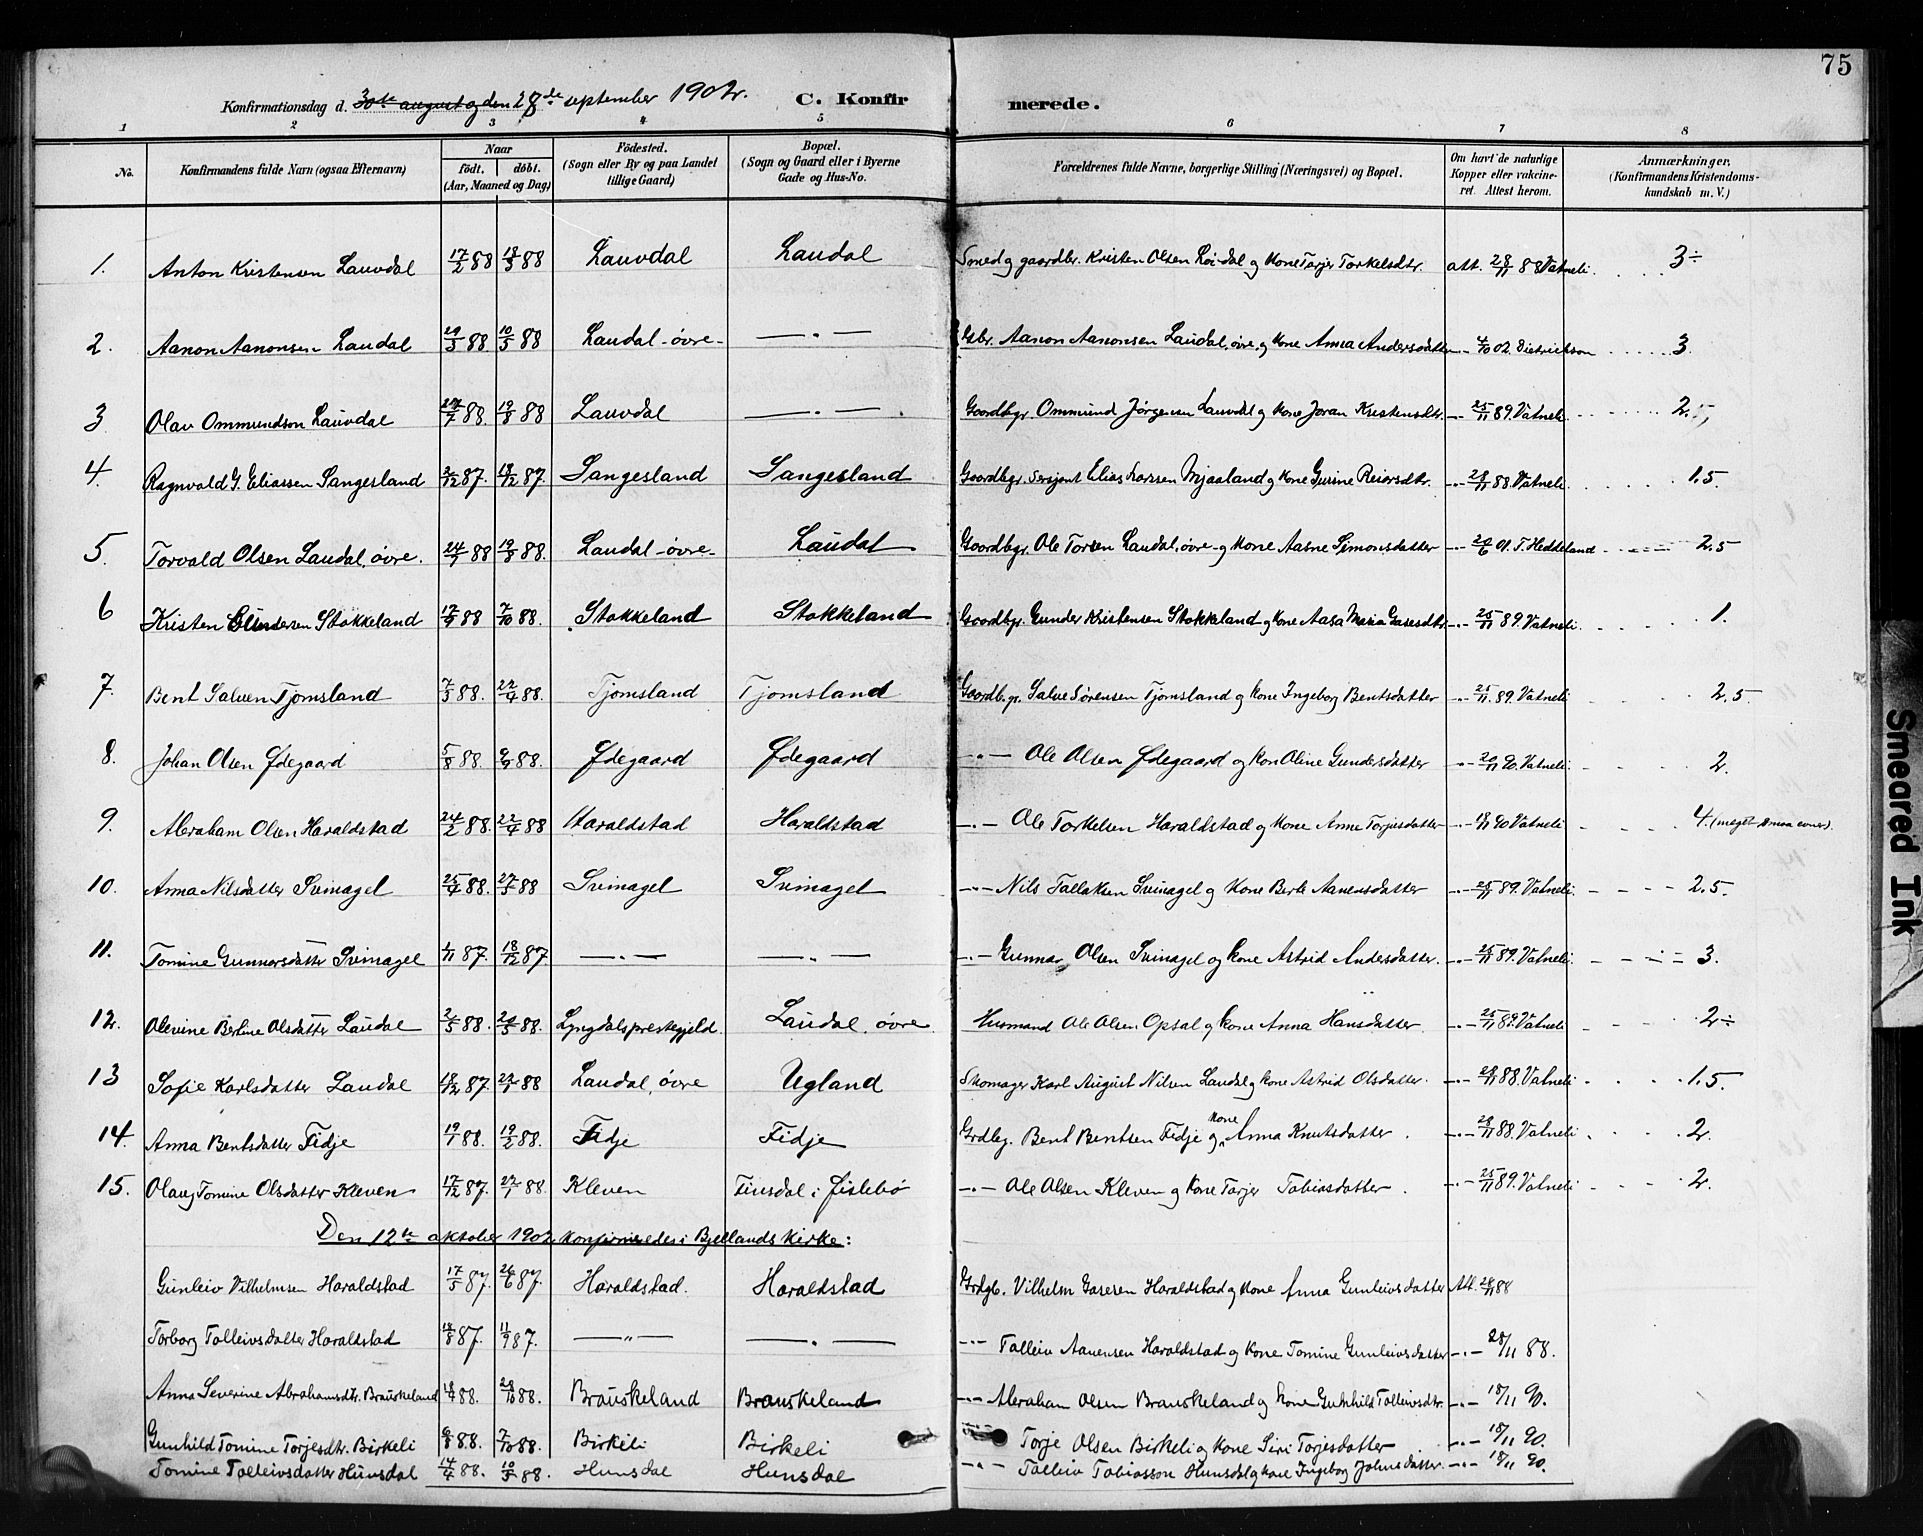 75
Konfirmationsdag d. 30te august og den 28de september 1902. C. Konfirmerede.
1 2 3 4 5 6 7 8
No. Konfirmandens fulde Navn (ogsaa Efternavn) Naar födt. döbt. (Aar, Maaned og Dag) Födested. (Sogn eller By og paa Landet tillige Gaard) Bopæl. (Sogn og Gaard eller i Byerne Gade og Hus-No. Forældrenes fulde Navne, borgerlige Stilling (Næringsvei) og Bopæl. Om havt de naturlige Kopper eller vakcineret. Attest herom. Anmærkninger. (Konfirmandens Kristendomskundskab m. V.)
1. Anton Kristensen Lauvdal 17/2 88 18/3 88 Lauvdal Laudal Smed og gaardbr. Kristen Olsen Lovdal og kone Tarjer Torkelsdtr. att. 28/11 88 Vatneli 3÷
2. Aanon Aanonsen Laudal 29/3 88 10/5 88 Laudal-övre- —„— Gbr. Aanon Aanonsen Laudal, övre, og kone Anna Andersdatter -„- 4/10 02. Dietrichson 3
3 Olav Ommundson Lauvdal 27/7 88. 19/8 88 Lauvdal —„— Gaardbgr. Ommund Jørgensen Lauvdal og kone Joran Kristensdtr. -„- 25/11 89. Vatneli 2.5
4. Ragnvald G. Eliassen Sangesland 2/12 87. 18/12 87. Sangesland Sangesland Gaardbgr. Sersjant Elias Larssen Mjaaland og kone Gurine Reiersdtr. -„- 28/11 88. Vatneli 1.5.
5. Torvald Olsen Laudal, övre. 24/7 88 19/8 88. Laudal-övre- Laudal Gaardbgr. Ole Torsen Laudal, övre- og kone Aasne Simonsdatter -„- 20/6 01. T. Heddeland 2.5
6 Kristen Gundersen Stokkeland 17/9 88 7/10 88. Stokkeland Stokkeland Gaardbgr. Gunder Kristensen Stokkeland og kone Aasa Maria Gasesdtr. -„- 25/11 89. Vatneli. 1.
7. Bent Salven Tjomsland 7/3 88. 22/4 88. Tjomsland Tjomsland Gaardbgr. Salve Sørensen Tjomsland og kone Ingeborg Bentsdatter -„- 25/11. 89. Vatneli 2.5.
8. Johan Olsen Ødegaard 5/8 88. 9/9 88. Ødegaard Ødegaard -„- Ole Olsen Ødegaard og kone Oline Gundersdatter -„- 20/11 90. Vatneli. 2.
9. Abraham Olsen Haraldstad 24/2 88. 22/4 88 Haraldstad Haraldstad -„- Ole Torkelsen Haraldstad og kone Anne Torjusdatter -„- 18/11 90 Vatneli 4. (meget smaa evner).
10. Anna Nilsdatter Svinagel 25/4 88. 27/5 88 Svinagel Svinagel -„- Nils Tallaksen Svinagel og kone Berte Aanensdatter -„- 25/11 89. Vatneli. 2.5.
11. Tomine Gunnarsdatter Svinagel 1/11 87. 18/12 87. —„— —„— -„- Gunnar Olsen Svinagel og kone Astrid Andersdatter. -„- 25/11 89. Vatneli. 3.
12. Olevine Bertine Olsdatter Laudal 2/5 88. 20/5 88. Lyngdals prestegjeld. Laudal, övre. Husmand Ole Olsen Opsal og kone Anna Hansdatter -„- 25/11 89. Vatneli 2÷
13 Sofie Karlsdatter Laudal 18/12 87. 22/1 88 Laudal, övre Ugland Skomager Karl August Nilsen Laudal og kone Astrid Olsdatter. -„- 28/11 88. Vatneli 1.5.
14. Anna Bentsdatter Fidje 19/1 88. 19/2 88. Fidje Fidje Grdbg. Bent Bentsen Fidje og kone Anna Knutsdatter -„- 28/11 88. Vatneli 2.
15. Olaug Tomine Olsdatter Kleven 17/12 87. 22/1 88. Kleven Finsdal i Øislebö -„- Ole Olsen Kleven og kone Tarjer Tobiasdatter -„- 25/11 89. Vatneli 2.
Den 12te oktober 1902 konfirmeredes i Bjellands kirke:
Gunleiv Vilhelmsen Haraldstad 17/5 87. 26/6 87. Haraldstad. Haraldstad Grdgb. Vilhelm Gasesen Haraldstad og kone Anna Gunleivsdatter Att. 28/11 88
Torborg Tolleivsdatter Haraldstad 18/8 87. 11/9 87. —„— —„— -„- Talleiv Aanensen Haraldstad og kone Tomine Gunleivsdatter -„- 28/11 88.
Anna Severine Abrahamsdtr. Brauskeland 18/9 88. 28/10 88. Brauskeland Brauskeland -„- Abraham Olsen Brauskeland og kone Gunhild Tolleivsdtr. -„- 18/11 90.
Gunhild Tomine Torjesdtr. Birkeli 9/8 88. 7/10 88. Birkeli Birkeli -„- Torje Olsen Birkeli og kone Siri Torjesdatter -„- 18/11 90.
Tomine Talleivsdatter Hunsdal 14/4 88. 10/5 88. Hunsdal Hunsdal -„- Talleiv Tobiasson Hunsdal og kone Ingeborg Johnsdatter. -„- 18/11 90.
Smeared Ink